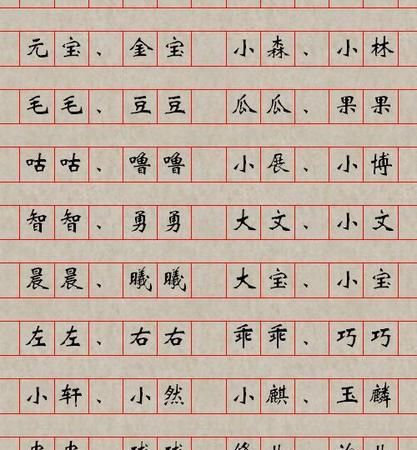 元宝、金宝 小森、小林
毛毛、豆豆 瓜瓜、果果
咕咕、噜噜 小展、小博
智智、勇勇 大文、小文
晨晨、曦曦 大宝、小宝
左左、右右 乖乖、巧巧
小轩、小然 小麒、玉麟